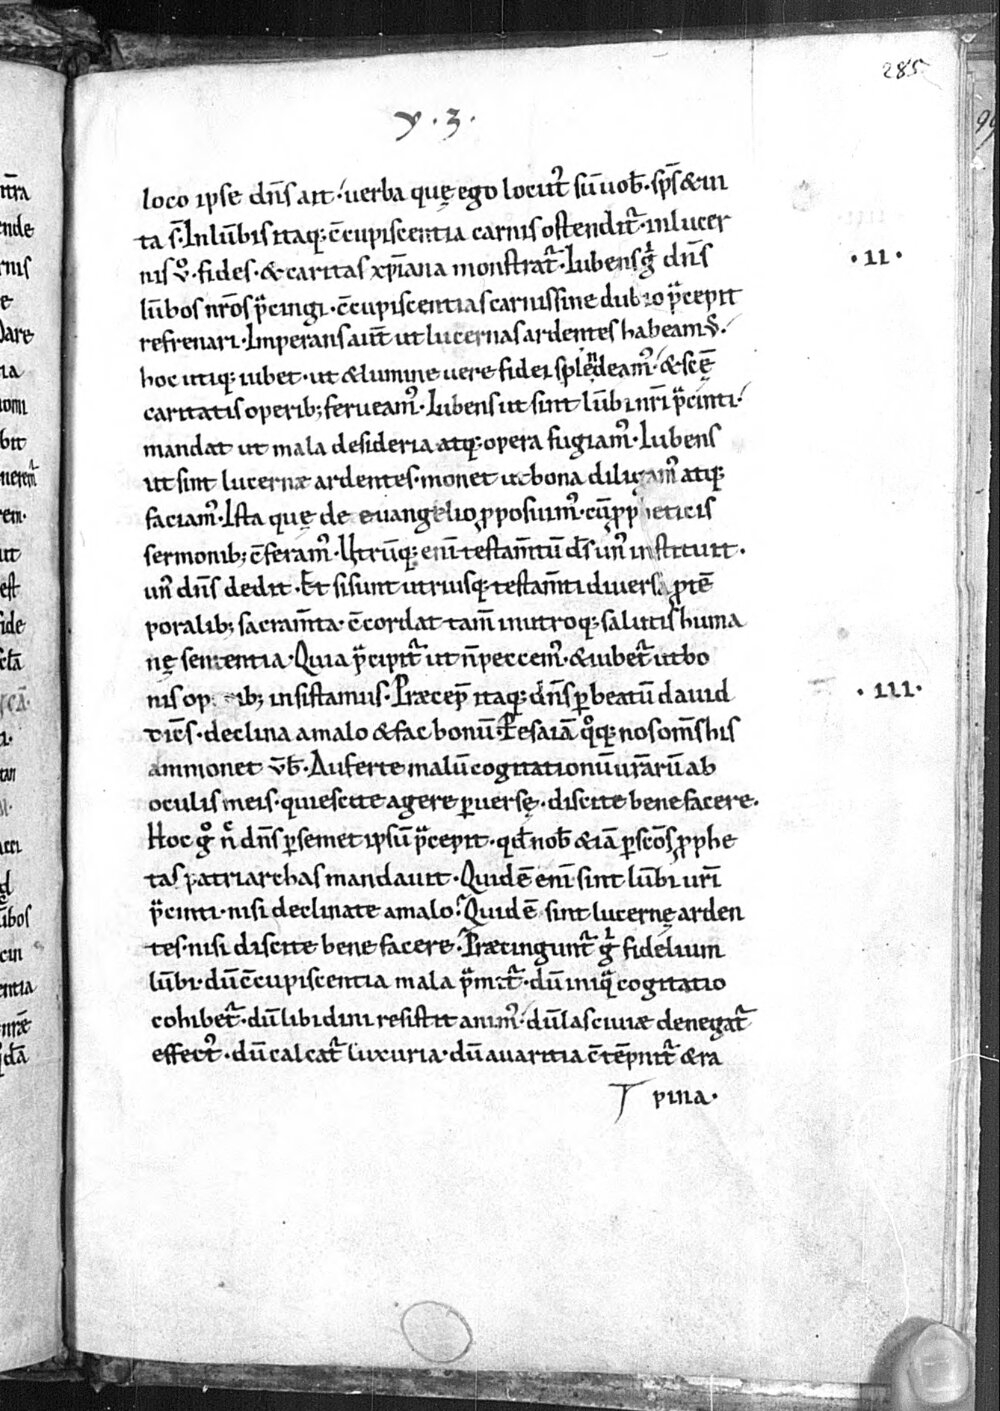 285
y · 3 ·
loco ipse dn̄s ait · uerba quę ego locut᷒ sū uob̄ · sp̄s & ui
ta s̄ · In lūbis itaq; c̄cupiscentia carnis ostendit᷑ · in lucer
nis v̊ · fides · & caritas xp̄iana monstrat᷑ · Iubens g̊ dn̄s
lūbos nr̄os p̄cingi · c̄cupiscentias carnis sine dubio p̄cepit
refrenari · Imperans aut̄ ut lucernas ardentes habeam᷒ ·
hoc utiq; iubet · ut & lumine uere fidei splendeam᷒ · & scę̄
caritatis operib; ferueam᷒ · Iubens ut sint lūbi nr̄i p̄cinti ·
mandat ut mala desideria atq; opera fugiam᷒ · Iubens
ut sint lucernæ ardentes · monet ut bona diligam᷒ atq;
faciam᷒ · Ista quę de euangelio ꝓposuim᷒ · cū ꝓpheticis
sermonib; c̄feram᷒ · Utrūq; enī testam̄tū d̄s un᷒ instituit ·
un᷒ dn̄s dedit · Et si sunt utriusq; testam̄ti diuersa ꝓ tē
poralib; sacram̄ta · c̄cordat tam̄ in utroq; salutis huma
nę sententia · Quia p̄cipit᷑ ut n̄ peccem᷒ · & iubet᷑ ut bo
nis op ib; insistamus · Præcep̄ itaq; dn̄s ꝑ beatū dauid
dic̄s · declina a malo & fac bonū · Per esaiā q̊q; nos om̄s his
ammonet v̄b̄ · Auferte malū cogitationū ur̄arū ab
oculis meis · quiescite agere ꝑuersę · discite bene facere ·
Hoc g̊ n̊ dn̄s ꝑ semet ipsū p̄cepit · qd̄ nob̄ & iā ꝑ scōs ꝓphe
tas patriarchas mandauit · Quid ē enī sint lūbi ur̄i
p̄cinti · nisi declinate a malo · Quid ē sint lucernę arden
tes · nisi discite bene facere · Præcingunt᷑ g̊ fidelium
lūbi · dū c̄cupiscentia mala p̄mit᷑ · dū iniq̄ cogitatio
cohibet᷑ · dū libidini resistit anim᷒ · dū lasciuiæ denegat᷑
effect᷒ · dū calcat᷑ luxuria · dū auaritia c̄tēpnit᷑ & ra
pina ·
· II ·
· III ·